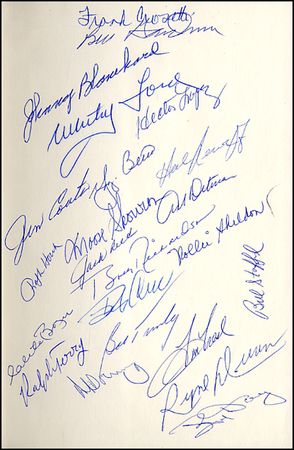 Frank Crosetti
Johnny Blanchard
Whitey Ford
Hector Lopez
Jim Coates
Yogi Berra
Hal Reniff
Moose Skowron
Art Ditmar
Jack Reed
Bobby Richardson
Rollie Sheldon
Bill Stafford
Ralph Terry
Bob Turley
Ryne Duren